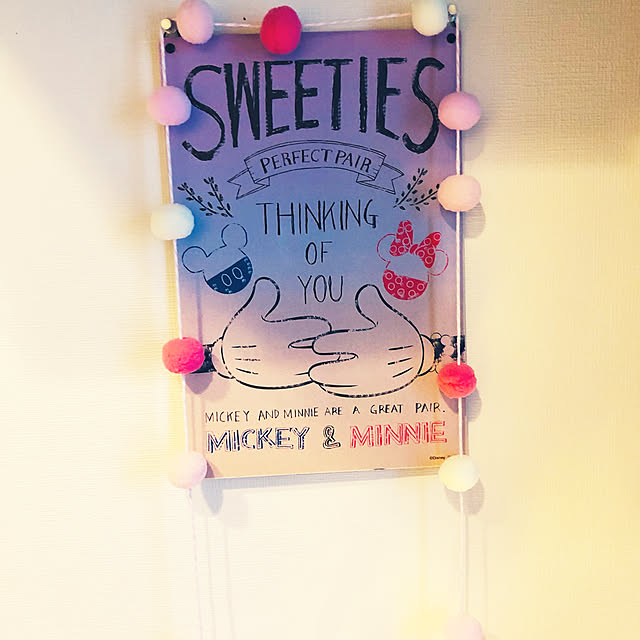 SWEETIES
PERFECT PAIR
THINKING
OF
YOU
MICKEY AND MINNIE ARE A GREAT PAIR.
MICKEY & MINNIE
©Disney